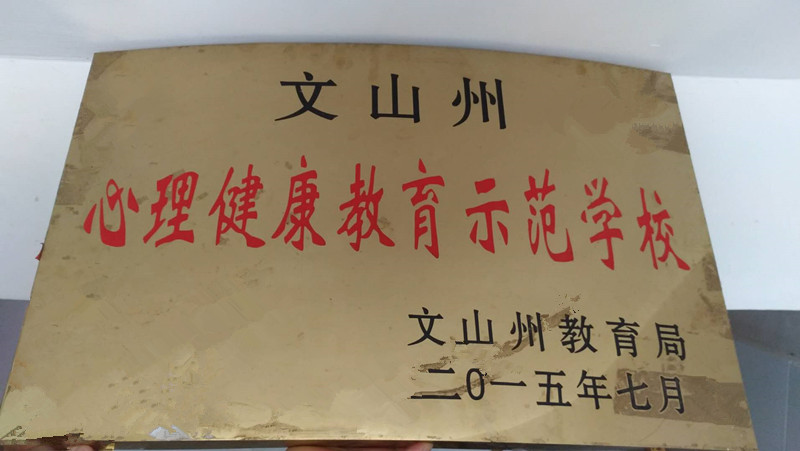 文山州
心理健康教育示范学校
文山州教育局
二0一五年七月